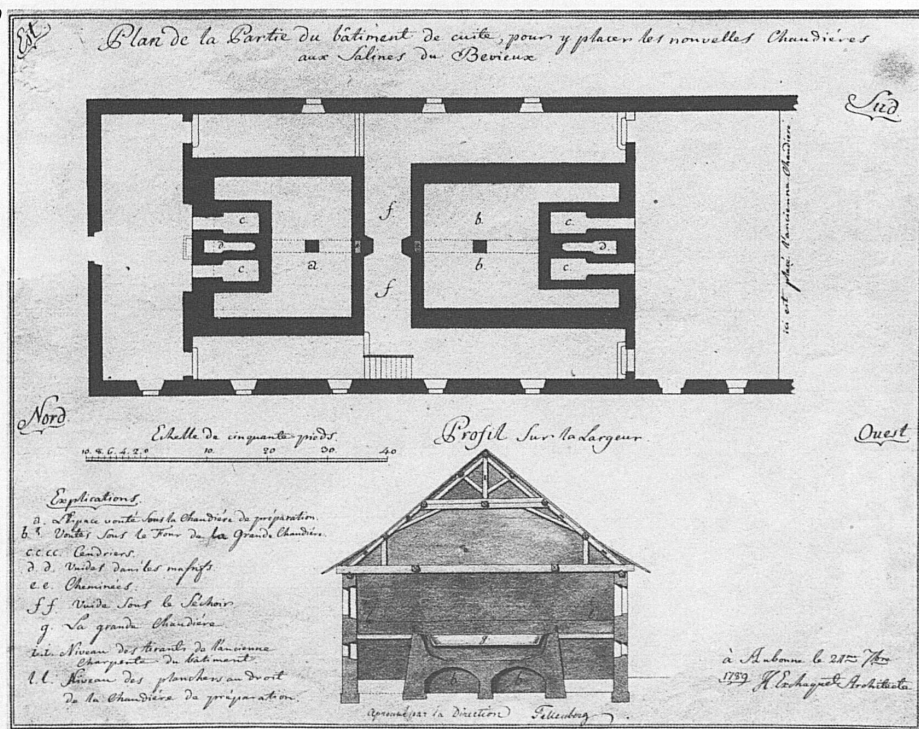 Est
Plan de la Partie du bâtiment de cuite, pour y placer les nouvelles Chaudiéres
aux Salines du Bevieux
Sud
ici est placé l'ancienne Chaudiere
c.
d.
c.
a.
f.
f.
b.
b.
c.
d.
c.
Nord
Ouest
Echelle de cinquante pieds.
10. 8. 6. 4. 2. 0 10. 20 30. 40
Profil Sur la Largeur.
Explications.
a. L'Espace vouté sous la Chaudiére de préparation.
b. Voutes Sous le Four de la Grande Chaudiére.
c.c.c.c. Cendriers.
d. d. Vuides dans les massifs.
e.e. Cheminées.
f f. Vuide Sous le Séchoir
g. La grande Chaudiére
Niveau des tirants de l'ancienne
Charpente du bâtiment
l.l. Niveau des planchers au droit
de la Chaudiére de préparation.
g.
b.
b.
à Aubonne le 7bre
1789 H Exchaquet Architecte
Aprouvé par la Direction Fellenberg